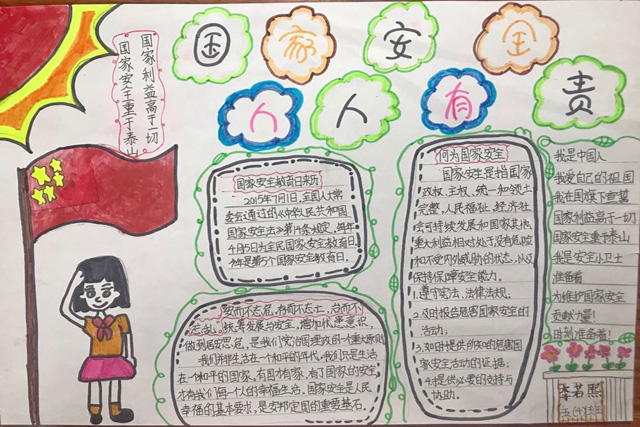 国家安全
人人有责
国家利益高于一切
国家安全重于泰山
国家安全教育日来历
2015年7月1日,全国人大常
委会通过的《中华人民共和国
国家安全法》第十条规定,每年
4月5日为全民国家安全教育日。
今年是第5个国家安全教育日。
何为国家安全
国家安全是指国家
政权、主权、统一和领土
完整,人民福祉、经济社
会可持续发展和国家其他
重大利益相对处于没有危险
和不受内外威胁的状态,以及
保持保障安全能力。
1.遵守宪法、法律法规;
2.及时报告危害国家安全的
活动;
3.如时提供所知的危害国
家安全活动的证据;
4.提供必要的支持与
协助。
我是中国人
我爱自己的祖国
我在国旗下宣誓
国家利益高于一切
国家安全重于泰山
我是安全小卫士
准备着
为维护国家安全
贡献力量!
时刻准备着!
安而不忘危,存而不忘亡,治而不
忘乱。统筹发展和安全,增加忧患意识,
做到居安思危,是我们党治国理政的一个重大原则
我们并非生活在一个和平的年代,我们只是生活
在一个和平的国家。有国才有家,有了国家的安全,
才有我们每一个人的幸福生活。国家安全是人民
幸福的基本要求,是安邦定国的重要基石。
李若熙